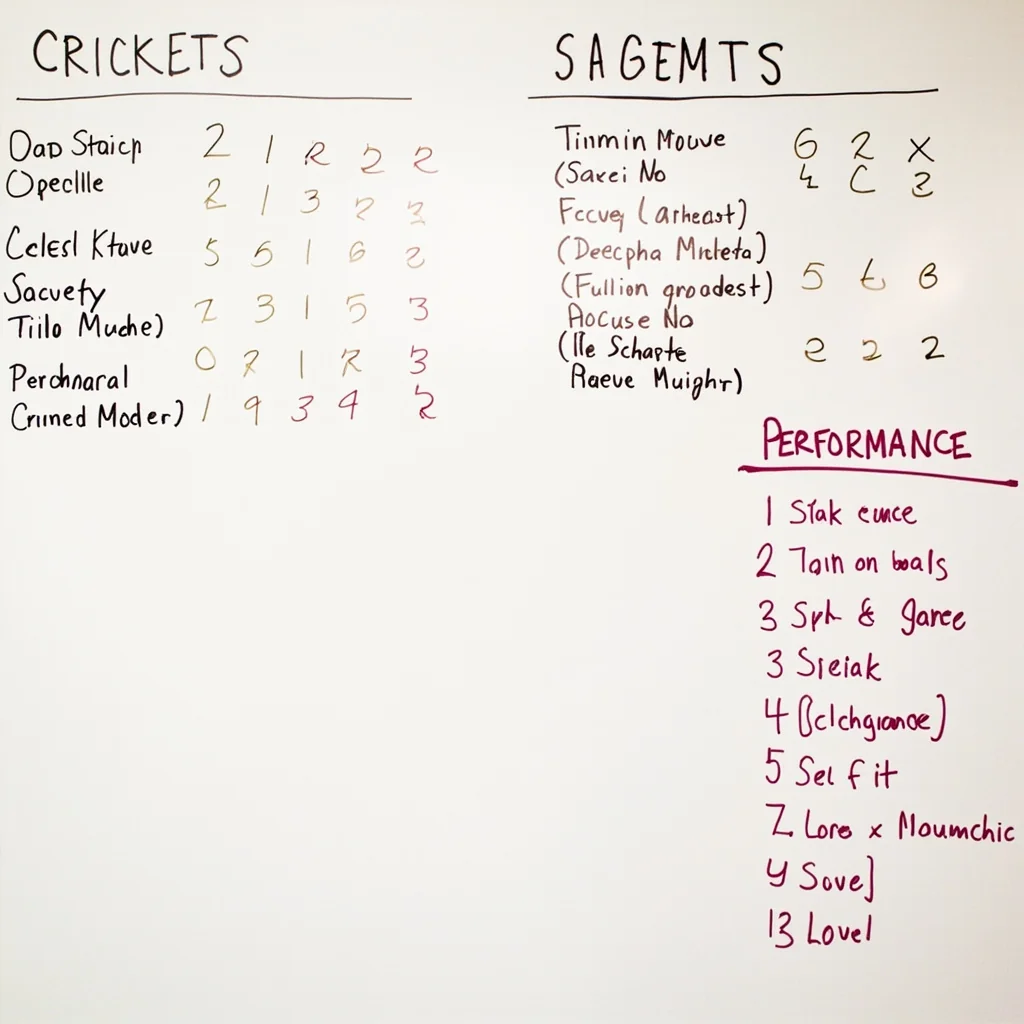 CRICKETS
Oap Staicp 2 1 R 2 2
Opeclle 2 1 3 2 3
Cclesl Ktave 5 5 1 6 2
Sacvety
Tiilo Muche) 2 3 1 5 3
0 2 1 R 3
Perchnaral
Crined Moder) 1 9 3 4 2
SAGEMTS
Tinmin Mouve 6 2 X
(Saxei No 4 C 2
Fccvey (Artheast)
(Deecpha Mictteta)
(Fullion groadest) 5 t 8
Aocuse No
(Ile Schapte 2 2 2
Raeve Muighr)
PERFORMANCE
1 Stak cunce
2 Tain on boals
3 Sph & garee
3 Sieiak
4 (Bclchgiance)
5 Sel f it
7. Lore x Moumchic
y Sove]
13 Lovel